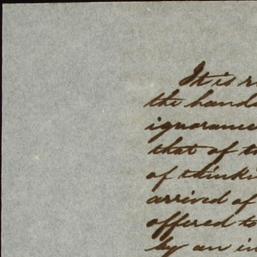 It is
the hands
ignorance
that of
of thinki
arrived of
offered to
by an in